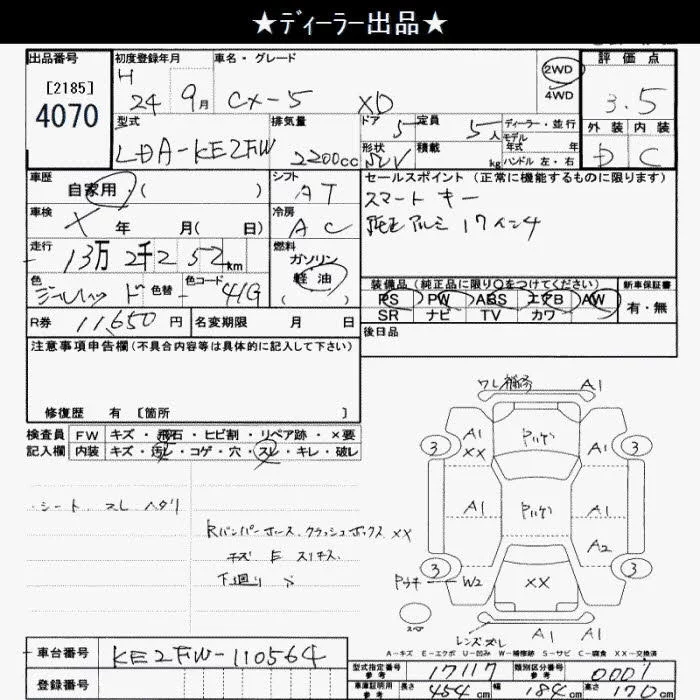 ★ディーラー出品★
出品番号 初度登録年月 車名・グレード 評価点
[2185] H 2WD
4070 24 9月 CX-5 XD 4WD 3.5
型式 排気量 ドア 5 定員 5人 ディーラー・並行 外装 内装
モデル年式 年式
LDA-KE2FW 2200cc 形状 SUV 積載 kg ハンドル 左・右 D C
車歴 自家用・( ) シフト AT セールスポイント (正常に機能するものに限ります)
スマートキー
車検 年 月( 日) 冷房 AC 純正アルミ 17インチ
走行 13万2千252km 燃料 ガソリン
軽油
( )
色 色替 色コード 41G 装備品(純正品に限り○をつけてください) 新車保証書
PS PW ABS エアB AW 有・無
SR ナビ TV カワ
R券 11,650円 名変期限 月 日 後日品
注意事項申告欄(不具合内容等は具体的に記入して下さい)
修復歴 有 [箇所 ]
検査員 FW キズ・飛石・ヒビ割・リペア跡・×要
記入欄 内装 キズ・汚レ・コゲ・穴・スレ・キレ・破レ
・シート スレ ヘタリ
Rバンパーホース、クラッシュボックス XX
キズ E スリキズ
下廻り S
ワレ補修 A1
A1 XX A1
3 3
A1 A1
A2
3 3
Pウチ W2 XX
スペア
レンズズレ A1 A1
A-キズ E-エクボ U-凹み W-補修跡 S-サビ C-腐食 XX-交換済
車台番号 KE2FW-110564 型式指定番号 参考 17117 類別区分番号 参考 0001
登録番号 車庫証明用 参考 長さ 454cm 幅 184cm 高さ 170cm